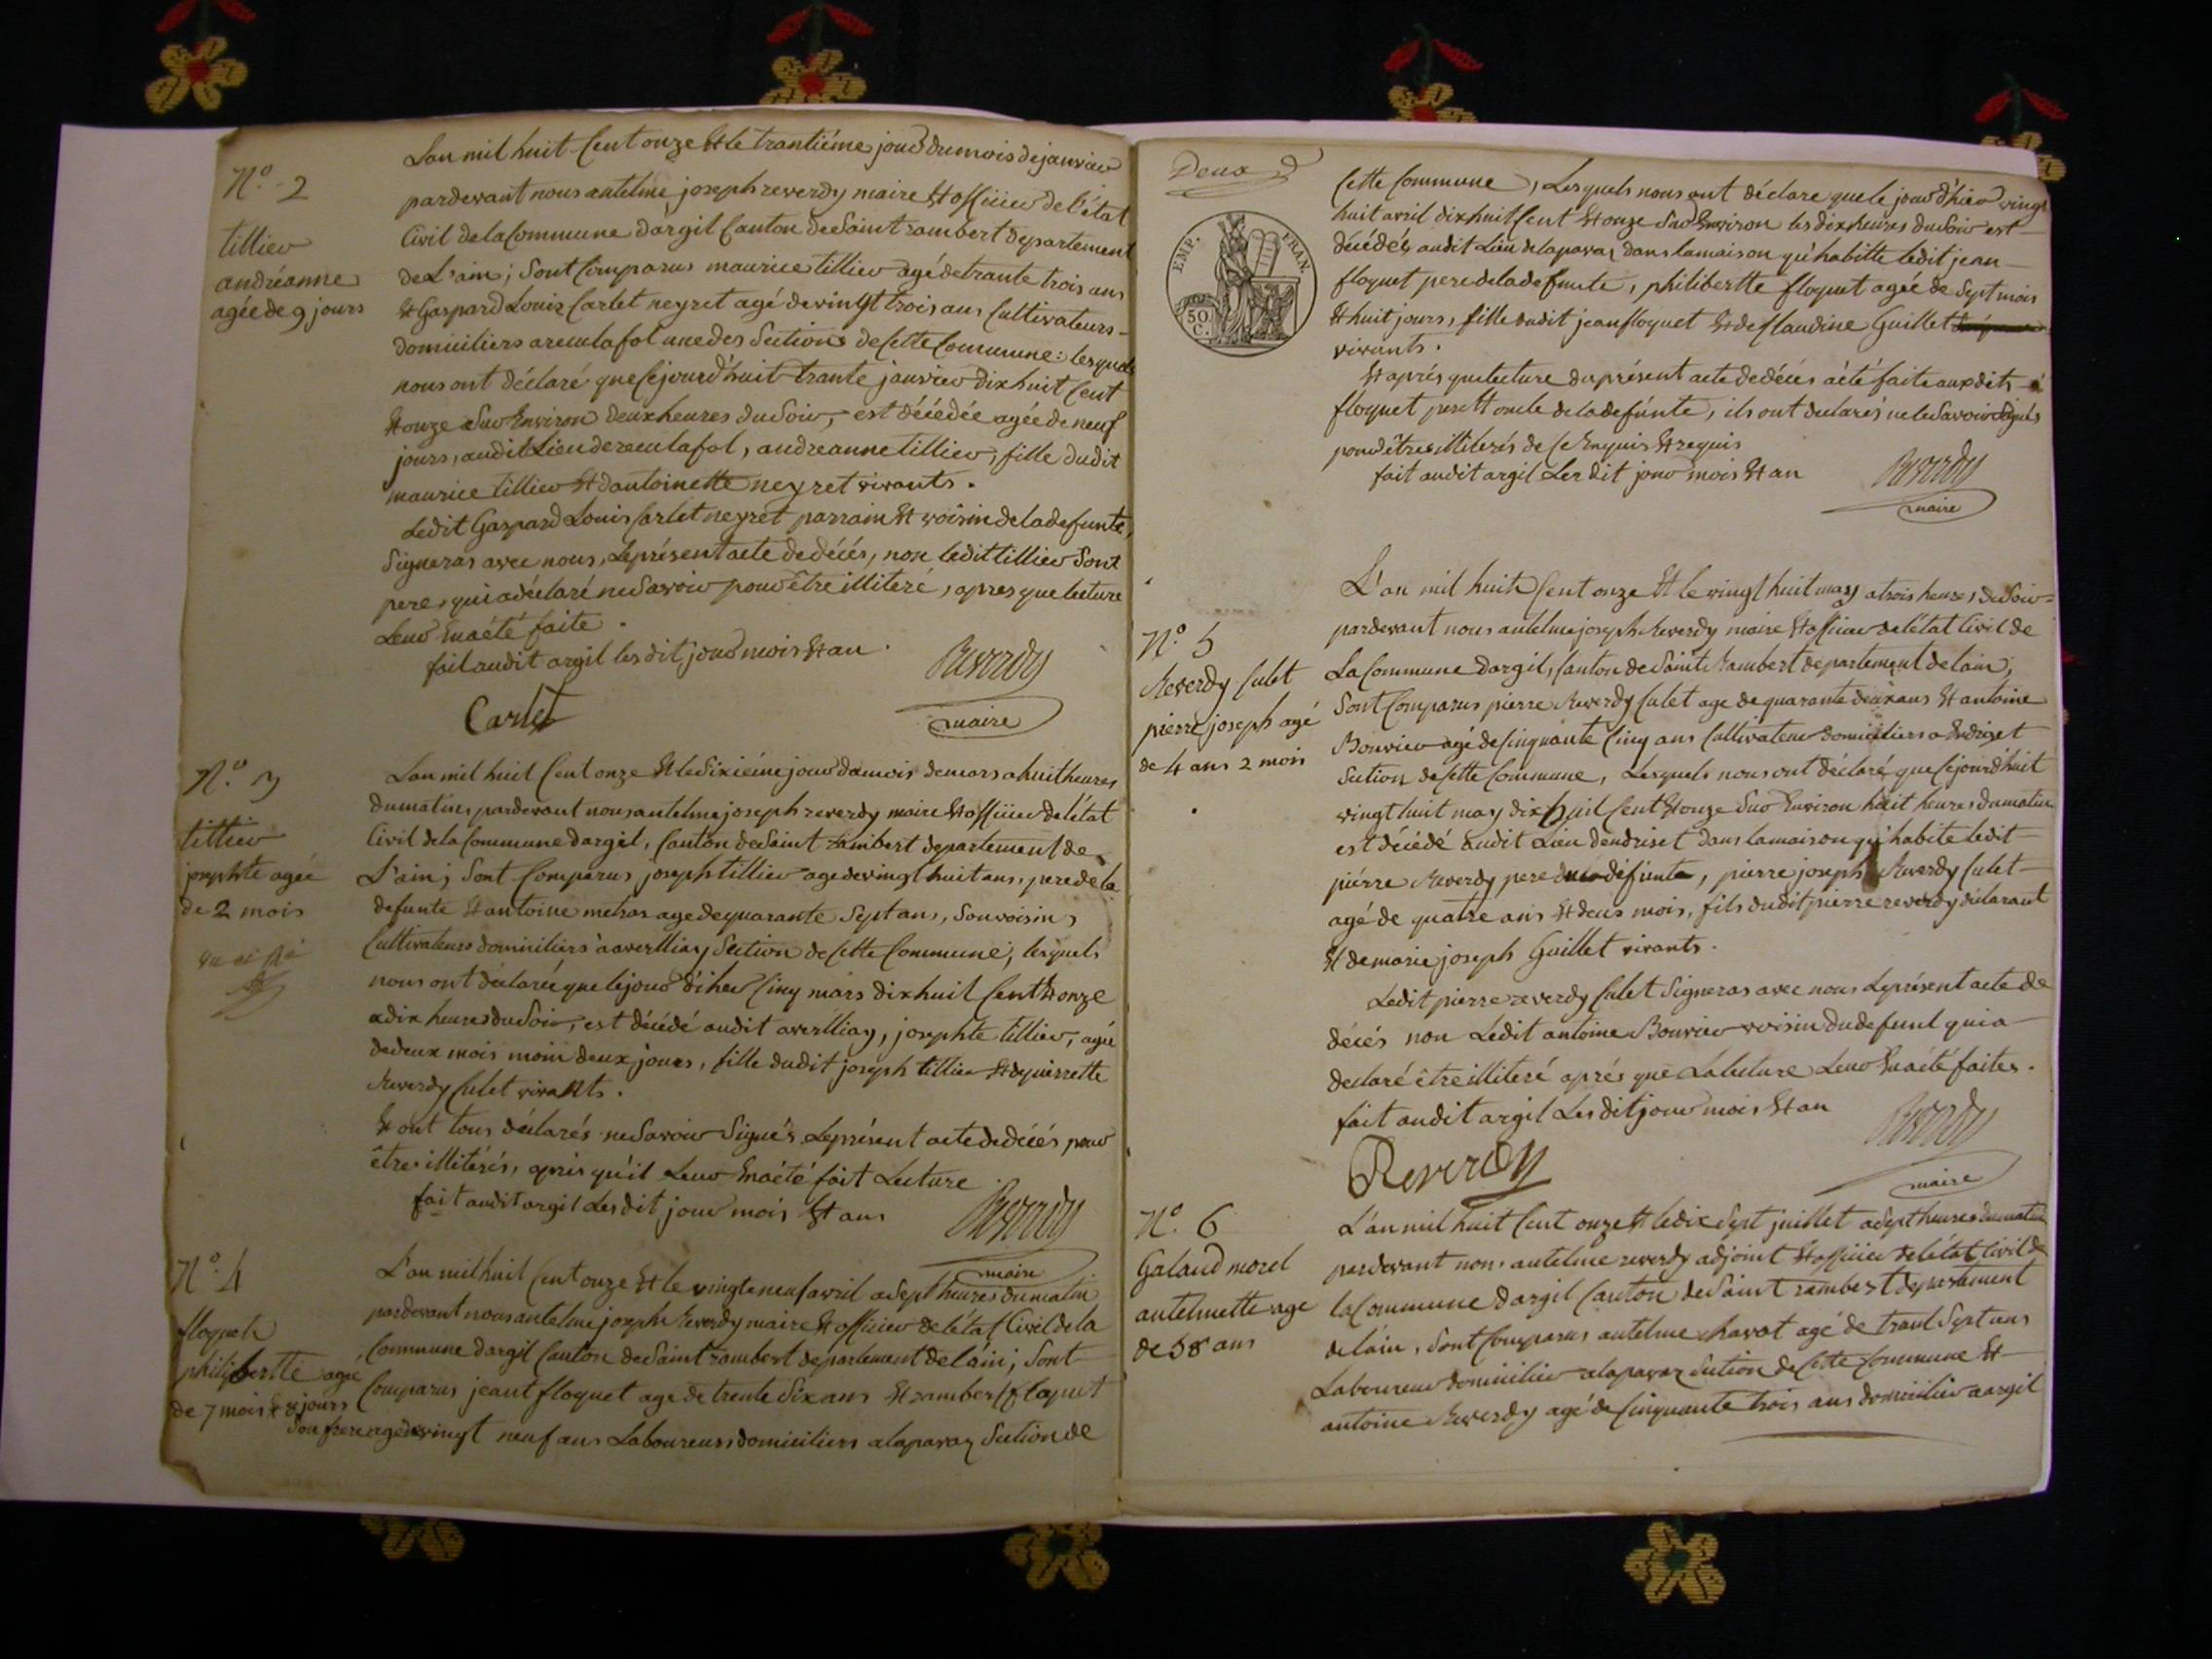 N.o 2
tillier
andréanne
agée de 9 jours
Lan mil huit Cent onze Et le trantiéme jour du mois de janvier
pardevant nous antelme joseph reverdy maire Et officier de l'état
Civil de la Commune dargil Canton de Saint rambert departement
de L'ain; Sont Comparus maurice tillier agé de trante trois ans
Et Gaspard Louis Carlet neyret agé de vingt trois ans Cultivateurs
domiciliers a reculafol une des Sections de Cette Commune: lesquels
nous ont déclaré que Cejourd'huit trante janvier dix huit Cent
Et onze Sur Environ deux heures du Soir, est décédée agée de neuf
jours, audit Lieu de reculafol, andreanne tillier, fille dudit
maurice tillier Et dantoinette neyret vivants.
Ledit Gaspard Louis Carlet neyret parrain Et voisin de la defunte,
Signeras avec nous, Le présent acte de décés, non ledit tillier Sont
pere, qui a déclaré ne Savoir pour être illiteré, apres que lecture
Leur En a été faite.
fait audit argil les dit jour mois Et an.
Reverdy
maire
Carlet
N.o 3
tillier
josephte agée
de 2 mois
Lan mil huit Cent onze Et le Sixiéme jour du mois de mars a huit heures
du matin, pardevant nous antelme joseph reverdy maire Et officier de l'état
Civil de la Commune dargil, Canton de Saint rambert departement de
L'ain; Sont Comparus joseph tillier age de vingt huit ans, pere de la
defunte Et antoine metras age de quarante Sept ans, Son voisin,
Cultivateurs domiciliers a averlliay Section de Cette Commune, lesquels
nous ont déclarée que le jour d'hier Cinq mars dix huit Cent Et onze
a dix heures du Soir, est décédé audit averlliay, josephte tillier, agée
de deux mois moin deux jours, fille dudit joseph tillier Et de pierrette
Reverdy Culet vivants.
Et ont tous déclarés ne Savoir Signés Le présent acte de décés pour
être illitérés, apris qu'il Leur En a été fait Lecture
fait audit argil Les dit jour mois Et ans
Reverdy
maire
N.o 4
floquet
philibertte agée
de 7 mois & 8 jours
L'an mil huit Cent onze Et le vingt neuf avril a Sept heures du matin
pardevant nous antelme joseph Reverdy maire Et officier de l'état Civil de la
Commune dargil Canton de Saint rambert departement de l'ain; Sont
Comparus jeant floquet age de trente Six ans Et rambert floquet
Son frere age de vingt neuf ans Laboureurs domiciliers a laparay Section de
Deux
EMP. FRAN.
50 C.
Cette Commune, Lesquels nous ont déclare que le jour d'hier vingt
huit avril dix huit Cent Et onze Sur Environ les dix heures du Soir est
décédés audit Lieu de laparay dans la maison qu'habitte ledit jean
floquet pere de la defunte, philibertte floquet agée de Sept mois
Et huit jours, fille dudit jean floquet Et de Claudine Guillet
vivants.
Et aprés que lecture du présent acte de décés a été faite auxdits
floquet pere Et oncle de la defunte, ils ont declarés ne le Savoir Signés
pour être illiterés de Ce Enquis Et requis
fait audit argil Les dit jour mois Et an
Reverdy
maire
N.o 5
Reverdy Culet
pierre joseph agé
de 4 ans 2 mois
L'an mil huit Cent onze Et le vingt huit may a trois heures du Soir
pardevant nous antelme joseph Reverdy maire Et officier de l'état Civil de
La Commune dargil, Canton de Saint Rambert departement de lain,
Sont Comparus pierre Reverdy Culet age de quarante deux ans Et antoine
Bouvier agé de Cinquante Cinq ans Cultivateur domiciliers a Endriset
Section de Cette Commune, Lesquels nous ont déclaré que Cejourdhuit
vingt huit may dix huit Cent Et onze Sur Environ huit heures du matin
est décédé audit Lieu dendriset dans la maison qu'habite ledit
piérre Reverdy pere du défunte, pierre joseph Reverdy Culet
agé de quatre ans Et deus mois, fils dudit pierre reverdy déclarant
Et de marie joseph Guillet vivants.
Ledit pierre reverdy Culet Signeras avec nous Le présent acte de
décés non Ledit antoine Bouvier voisin du defunt qui a
declaré être illiteré aprés que La lecture Leur En a été faites.
fait audit argil Les dit jour mois Et an
Reverdy
maire
Reverdy
N.o 6
Galand morel
antelmette age
de 58 ans
L'an mil huit Cent onze Et le dix Sept juillet a Sept heures du matin
pardevant nous antelme reverdy adjoint Et officier de l'état Civil de
la Commune dargil Canton de Saint rambert departement
de lain, Sont Comparus antelme chavot agé de trant Sept ans
Laboureur domicilier a laparaz Section de Cette Commune Et
antoine Reverdy agé de Cinquante trois ans domicilier a argil